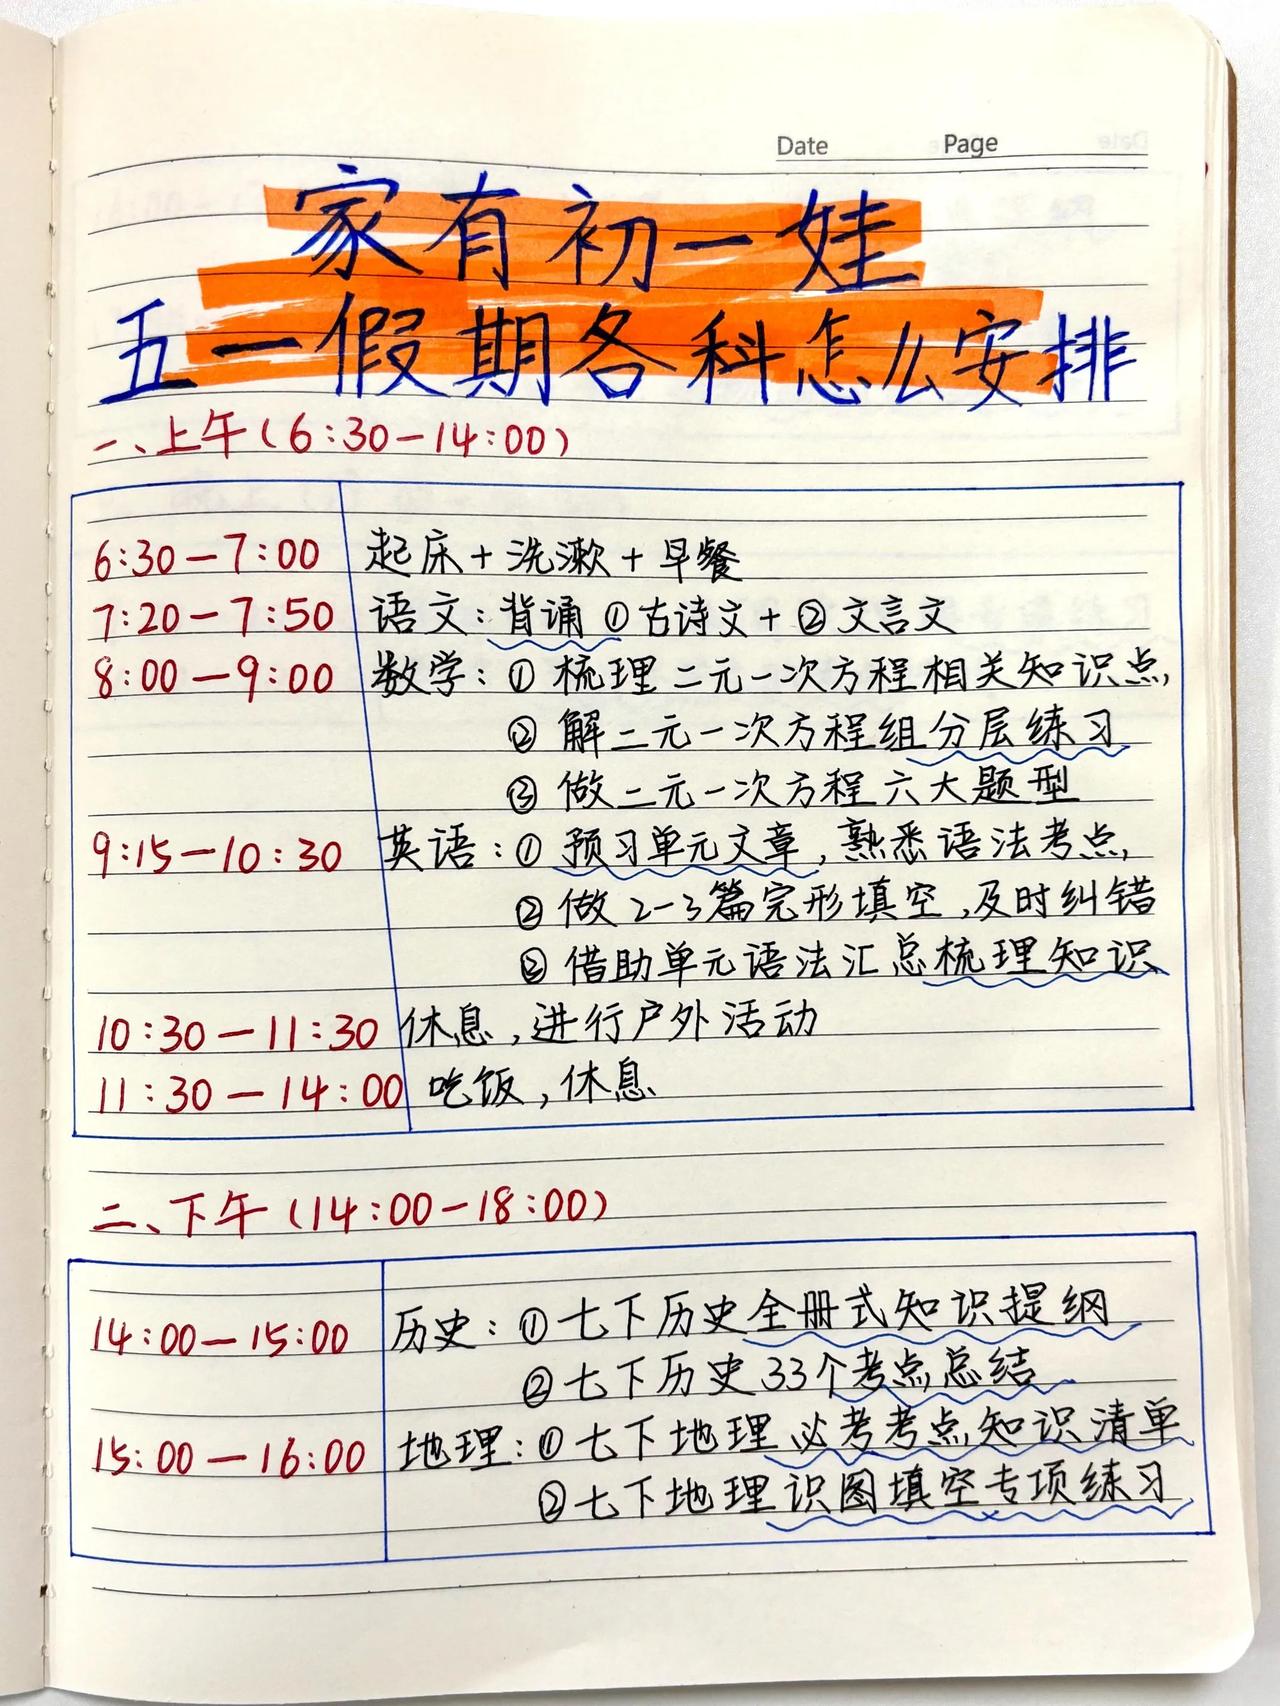 Date Page
家有初一娃
五一假期各科怎么安排
一、上午(6:30—14:00)
6:30—7:00 起床+洗漱+早餐
7:20—7:50 语文:背诵①古诗文+②文言文
8:00—9:00 数学:①梳理二元一次方程相关知识点,
②解二元一次方程组分层练习
③做二元一次方程六大题型
9:15—10:30 英语:①预习单元文章,熟悉语法考点,
②做2-3篇完形填空,及时纠错
③借助单元语法汇总梳理知识
10:30—11:30 休息,进行户外活动
11:30—14:00 吃饭,休息
二、下午(14:00—18:00)
14:00—15:00 历史:①七下历史全册式知识提纲
②七下历史33个考点总结
15:00—16:00 地理:①七下地理必考考点知识清单
②七下地理识图填空专项练习